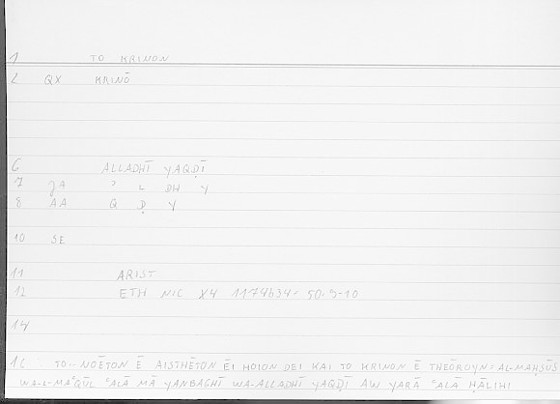 1 TO KRINON
2 QX KRINŌ
6 ALLADHĪ YAQḌĪ
7 JA ʾ L DH Y
8 AA Q Ḍ Y
10 SE
11 ARIST
12 ETH NIC X4 1174b34; 50.9-10
14
16 TO NOĒTON Ē AISTHĒTON ĒI HOION DEI KAI TO KRINON Ē THEŌROYN; AL-MAḤSŪS
WA-L-MAʿQŪL ʿALĀ MĀ YANBAGHĪ WA-ALLADHĪ YAQḌĪ AW YARĀ ʿALĀ ḤĀLIHI